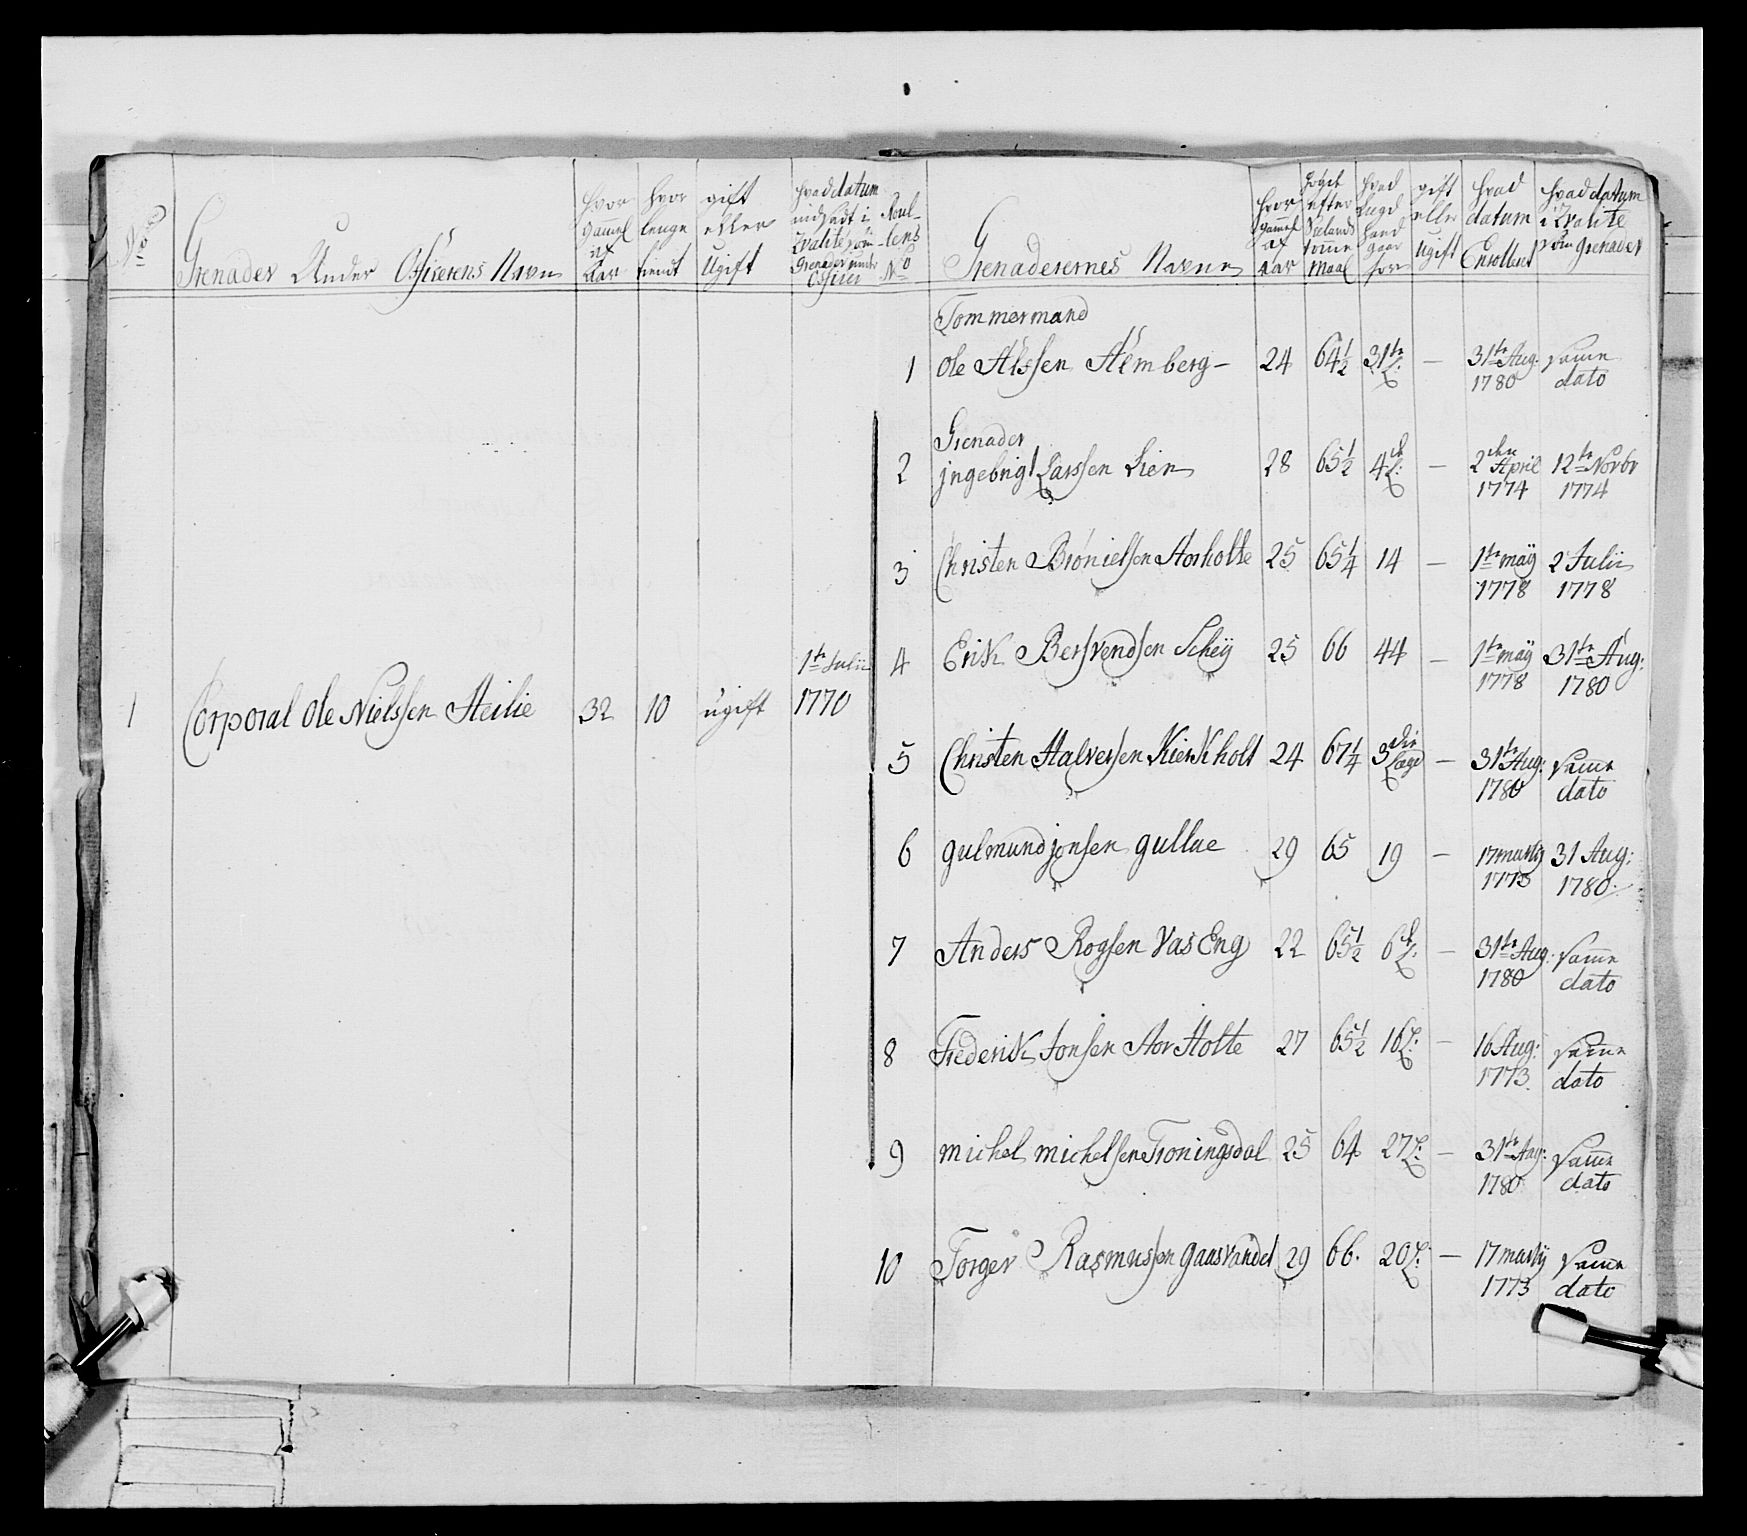 No
Grenader Under Officerens Navn
hvor gammel af Aar
hvor lenge tient
gift eller Ugift
hvad datum indsadt i Qvalite som Grenader under Officer
Roullens No
Grenaderernes Navne
hvor gammel af Aar
høyet efter Siælands tomme Maal
hvad Lægd hand gaar for
gift eller Ugift
hvad datum Enrollent
hvad datum i Qvalite som Grenader
1 Corporal Ole Nielssen Heilie 32 10 ugift 1te Julii 1770
Tommermand
1 Ole Alssen Hemberg – 24 64½ 31te L: — 31te Aug: 1780 samme dato
Grenader
2 jngebrigt Larssen Lien 28 65½ 4de L: — 2den April 1774 12te Novbr 1774
3 Christen Brønielsen Aorholte 25 65¼ 14 — 1te maÿ 1778 2 Julii 1778
4 Erik Bersvendsen Scheÿ 25 66 44 — 1te maÿ 1778 31te Aug: 1780
5 Christen Halversen Kierkholt 24 67¼ 3die Lægd — 31te Aug: 1780 samme dato
6 gulmund jonsen gullae 29 65 19 — 17 martÿ 1773 31 Aug: 1780.
7 Anders Roßen VasEng 22 65½ 6te L: — 31te Aug: 1780 samme dato
8 Frederik Jonsen Aor Holte 27 65½ 16 L: — 16 Aug: 1773. samme dato
9 michel michelsen Froningsdal 25 64 27 L: — 31te Aug: 1780 samme dato
10 Torger Rasmussen gaasvandet 29 66. 20 L: — 17 martÿ 1773 samme dato